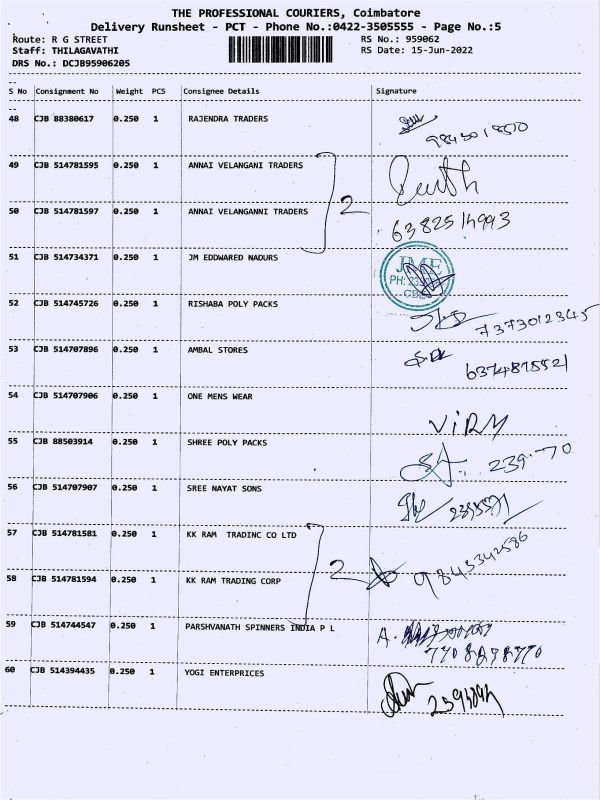 THE PROFESSIONAL COURIERS, Coimbatore
Delivery Runsheet - PCT - Phone No.:0422-3505555 - Page No.:5
Route: R G STREET
RS No.: 959062
Staff: THILAGAVATHI
RS Date: 15-Jun-2022
DRS No.: DCJB95906205
S No Consignment No Weight PCS Consignee Details Signature
48 CJB 88380617 0.250 1 RAJENDRA TRADERS
49 CJB 514781595 0.250 1 ANNAI VELANGANI TRADERS
2
50 CJB 514781597 0.250 1 ANNAI VELANGANNI TRADERS
51 CJB 514734371 0.250 1 JM EDDWARED NADURS
JME
PH:
52 CJB 514745726 0.250 1 RISHABA POLY PACKS
7373012345
53 CJB 514707896 0.250 1 AMBAL STORES
6374875521
54 CJB 514707906 0.250 1 ONE MENS WEAR
ViRM
55 CJB 88503914 0.250 1 SHREE POLY PACKS
56 CJB 514707907 0.250 1 SREE NAYAT SONS
57 CJB 514781581 0.250 1 KK RAM TRADINC CO LTD
2 9843342586
58 CJB 514781594 0.250 1 KK RAM TRADING CORP
59 CJB 514744547 0.250 1 PARSHVANATH SPINNERS INDIA P L
A.
60 CJB 514394435 0.250 1 YOGI ENTERPRICES